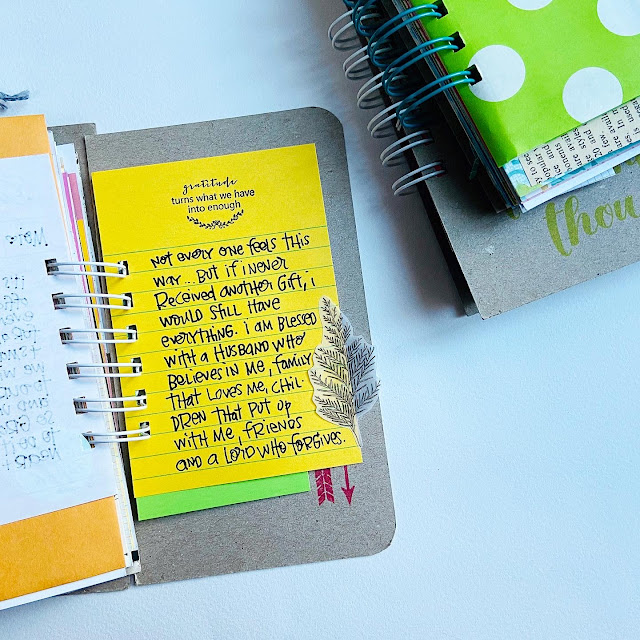 gratitude
turns what we have
into enough
NOT EVERY ONE FEELS THIS
WAY... BUT IF I NEVER
RECEIVED ANOTHER GIFT, I
WOULD STILL HAVE
EVERYTHING. I AM BLESSED
WITH A HUSBAND WHO
BELIEVES IN ME, FAMILY
THAT LOVES ME, CHIL-
DREN THAT PUT UP
WITH ME, FRIENDS
AND A LORD WHO FORGIVES.
used
few
are avail
20 and
onents
ce and
gular
y to see
thou